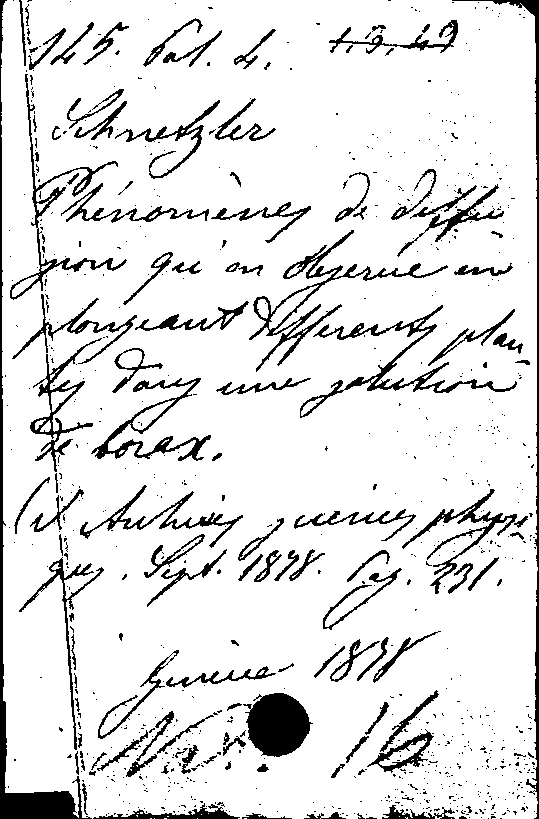 145. Pat. 4. 13,49
Schnetzler
Phénomènes de diffu
sion qu'on observe en
plongeant differents plan
tes dans une solution
de borax.
Archives sciences physi
ques. Sept. 1878. Pag. 231.
Genève 1878
Nat. 16